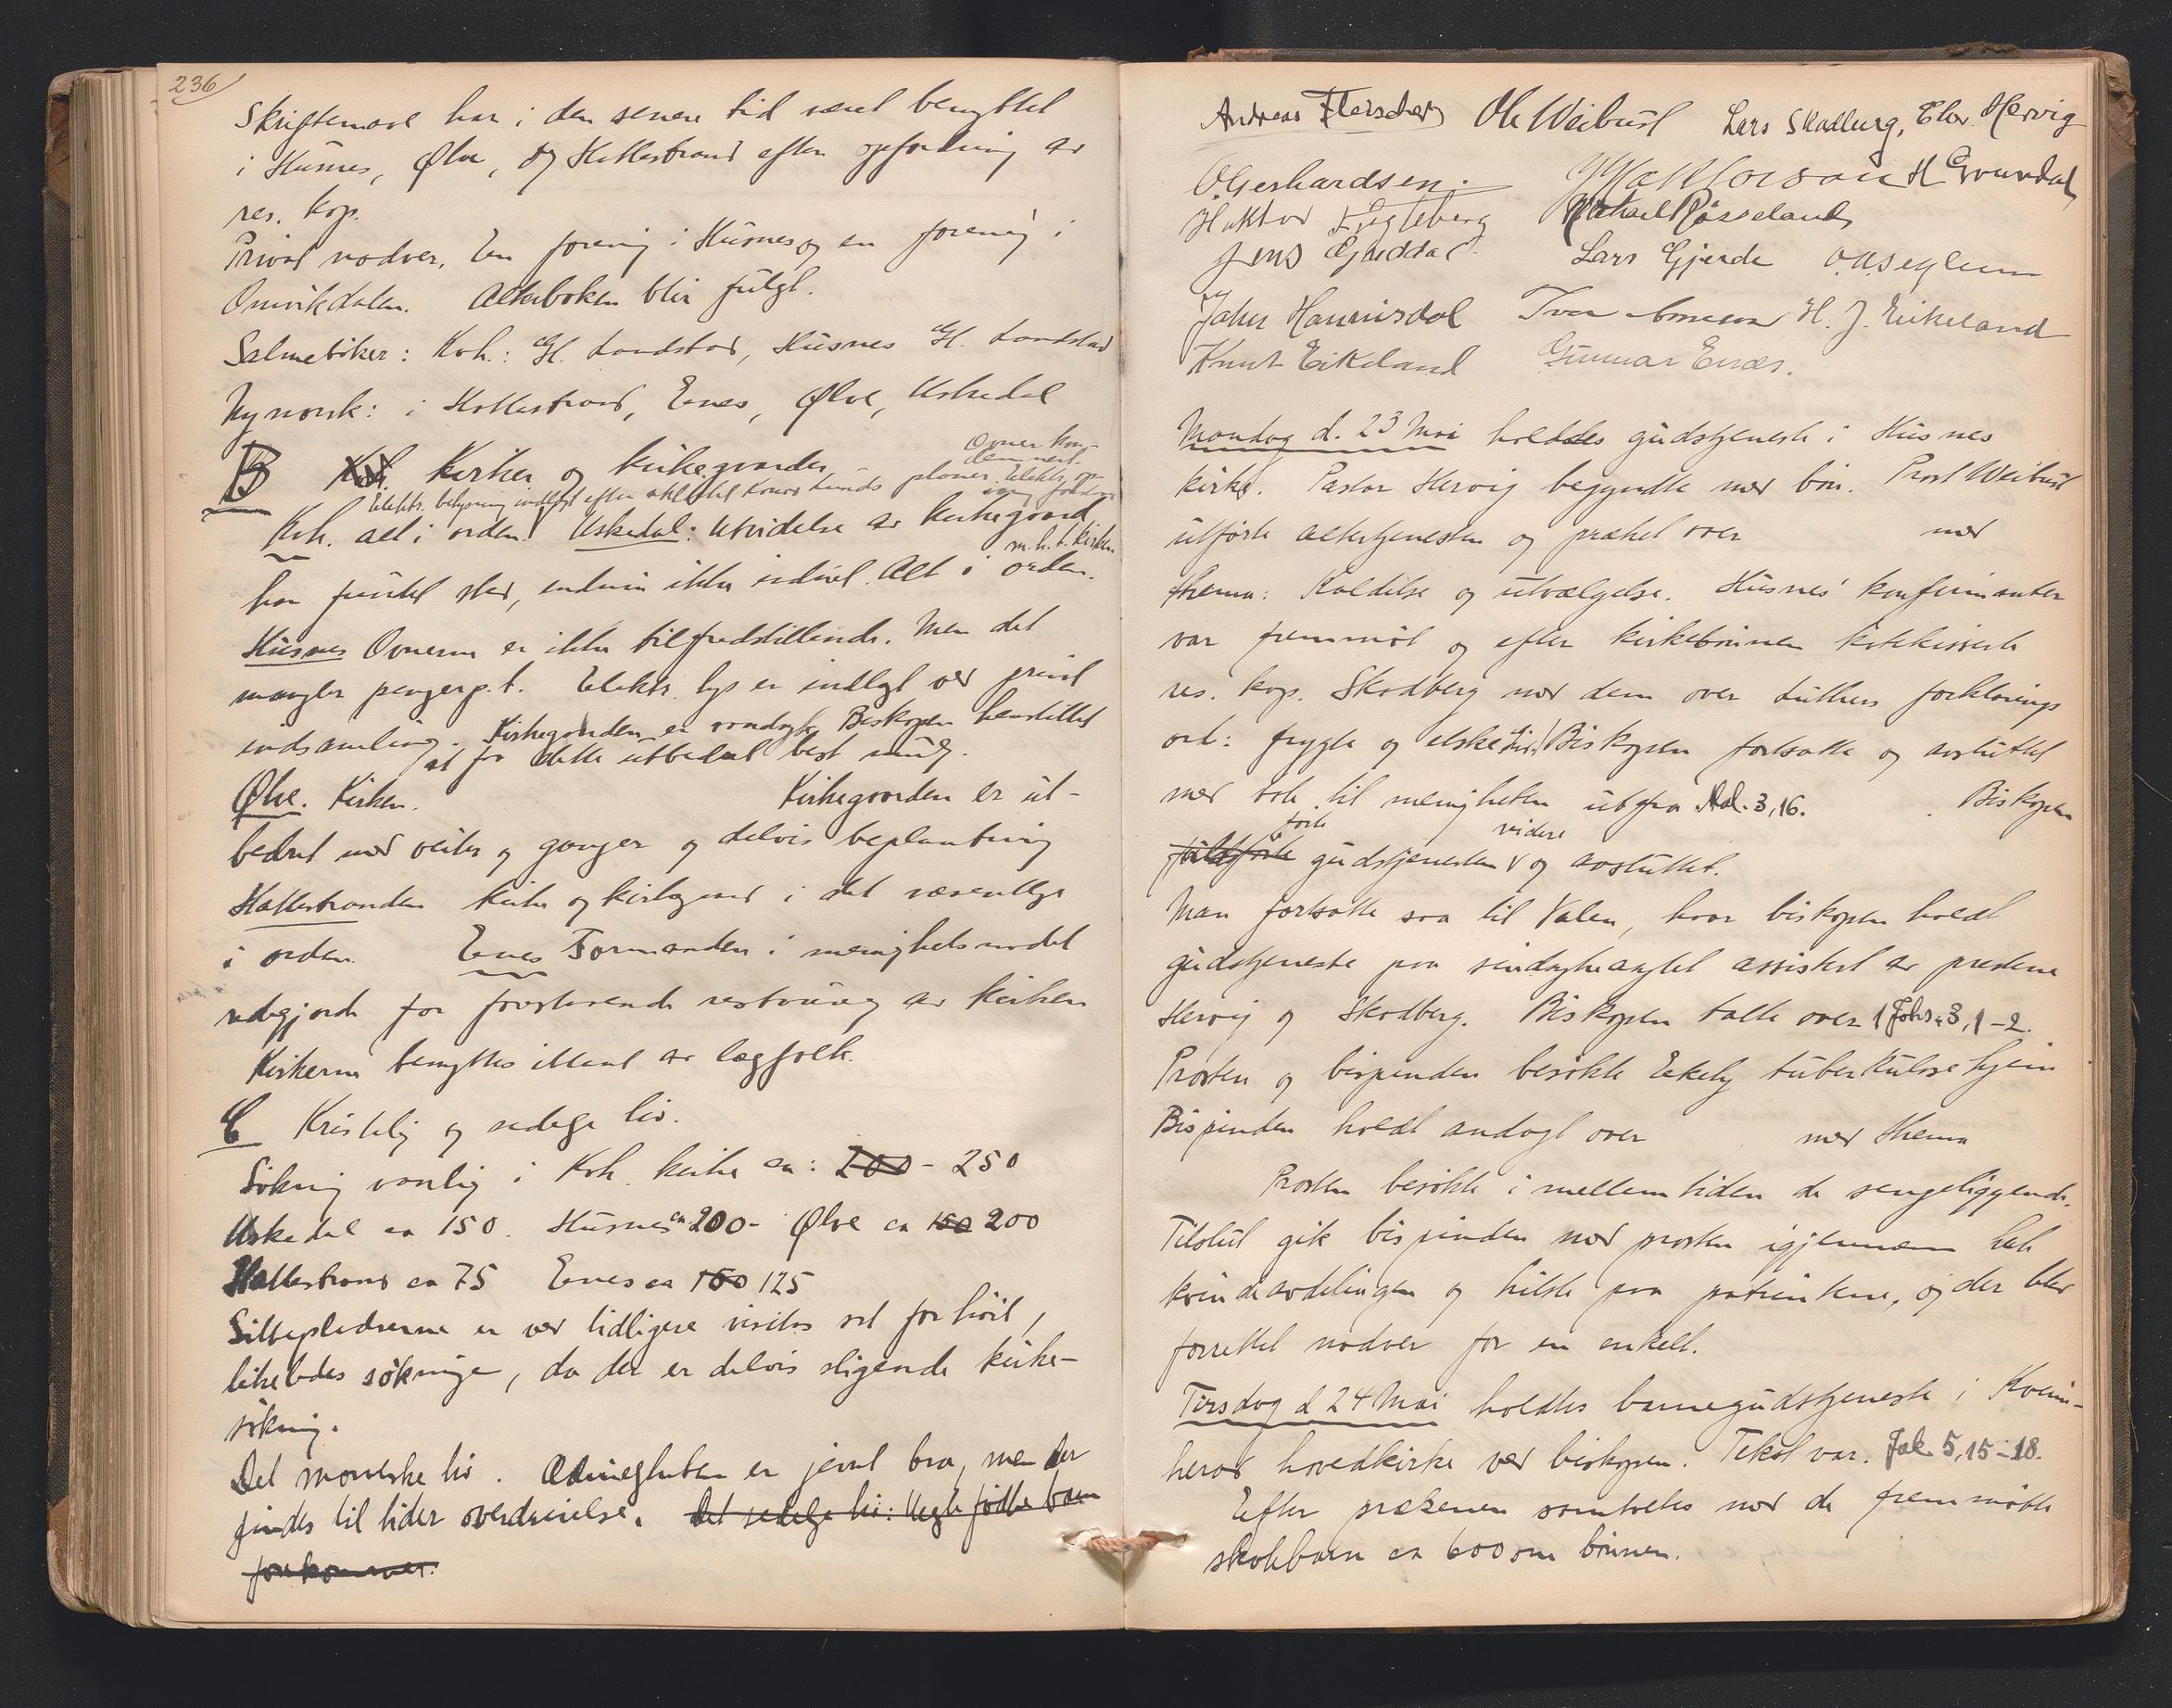 236
Skriftemaal har i den senere tid været benyttet
i Husnes, Ølve, og Hattestrand efter opfordring av
res. kap.
Privat nadver. En forening i Husnes og en forening i
Omvikdalen. Alterboken blir fulgt.
Salmebøker: Kvh.: Gl. Landstad, Husnes Gl. Landstad
Nynorsk: i Hattestrand, Enes, Ølve, Uskedal
B Kirker og kirkegaarder
Ovner kon-
demnert.
Elektr. belysning indlagt efter arkitekt Konow Lunds planer. Elektr. op-
Kvh. alt i orden! Uskedal: Utvidelse av kirkegaard
m.h.t. kirken
har fundet sted, endnu ikke indviet. Alt i orden.
Husnes Ovnerne er ikke tilfredstillende. Men det
mangler penger p.t. Elektr. lys er indlagt ved privat
indsamling. Kirkegaarden er vandsyk. Biskopen henstillet
at faa dette utbedret best mulig.
Ølve. Kirken. Kirkegaarden er ut-
bedret med veiter og ganger og delvis beplantning
Hattestranden kirke og kirkegaard i det væsentlige
i orden. Enes Formanden i menighetsraadet
redegjorde for forestaaende restaurering av kirken
Kirkerne benyttes iblant av lægfolk.
C Kristelig og sedelige liv.
Søkning vanlig i Kvh. kirke ca: 200 - 250
Uskedal ca 150. Husnes ca 200 - Ølve ca 150 200
Hattestrand ca 75 Enes ca 150 125
Sittepladserne er ved tidligere visitas sat for høit,
likeledes søkninge, da der er delvis stigende kirke-
søkning.
Det moralske liv. Ædrueligheten er jevnt bra, men der
findes til tider overdrivelse. Det sedelige liv: Uegte fødte barn
forekommer.
Andreas Fleischer Ole Weibust Lars Skadberg, Elov Hervig
O Gerhardsen. H Grøndal
Haktor Fugleberg Mikael Røsseland
Jens Gjuddal Lars Gjerde O.A. Seglem
Johs Hannisdal Ivar H. J. Eikeland
Knut Eikeland Gunnar Enæs.
Mandag d. 23 Mai holdtes gudstjeneste i Husnes
kirke. Pastor Hervig begyndte med bøn. Prost Weibust
utførte altertjenesten og præket over med
thema: Kaldelse og utvælgelse. Husnes' konfirmanter
var fremmøt og efter kirkebønnen katekiserte
res. kap. Skadberg med dem over Luthers forklarings
ord: frygte og elske Gud. Biskopen fortsatte og avsluttet
med tale til menigheten ut fra Aal. 3,16. Biskopen
førte videre
fuldførte gudstjenesten og avsluttet.
Man fortsatte saa til Valen, hvor biskopen holdt
gudstjeneste paa sindsykeasylet assistert av prestene
Hervig og Skadberg. Biskopen talte over 1 Johs. 3, 1-2.
Prosten og bispinden besøkte Eikely tuberkulosehjem
Bispinden holdt andagt over med thema
Prosten besøkte i mellemtiden de sengeliggende.
Tilslut gik bispinden med prosten igjennem hele
kvindeavdelingen og hilste paa patientene, og der blev
forrettet nadver for en enkelt.
Tirsdag d 24 Mai holdtes barnegudstjeneste i Kvinn-
herad hovedkirke ved biskopen. Tekst var. Jak. 5, 15-18.
Efter prækenen samtaltes med de fremmøtte
skolebarn ca 600 om bønnen.